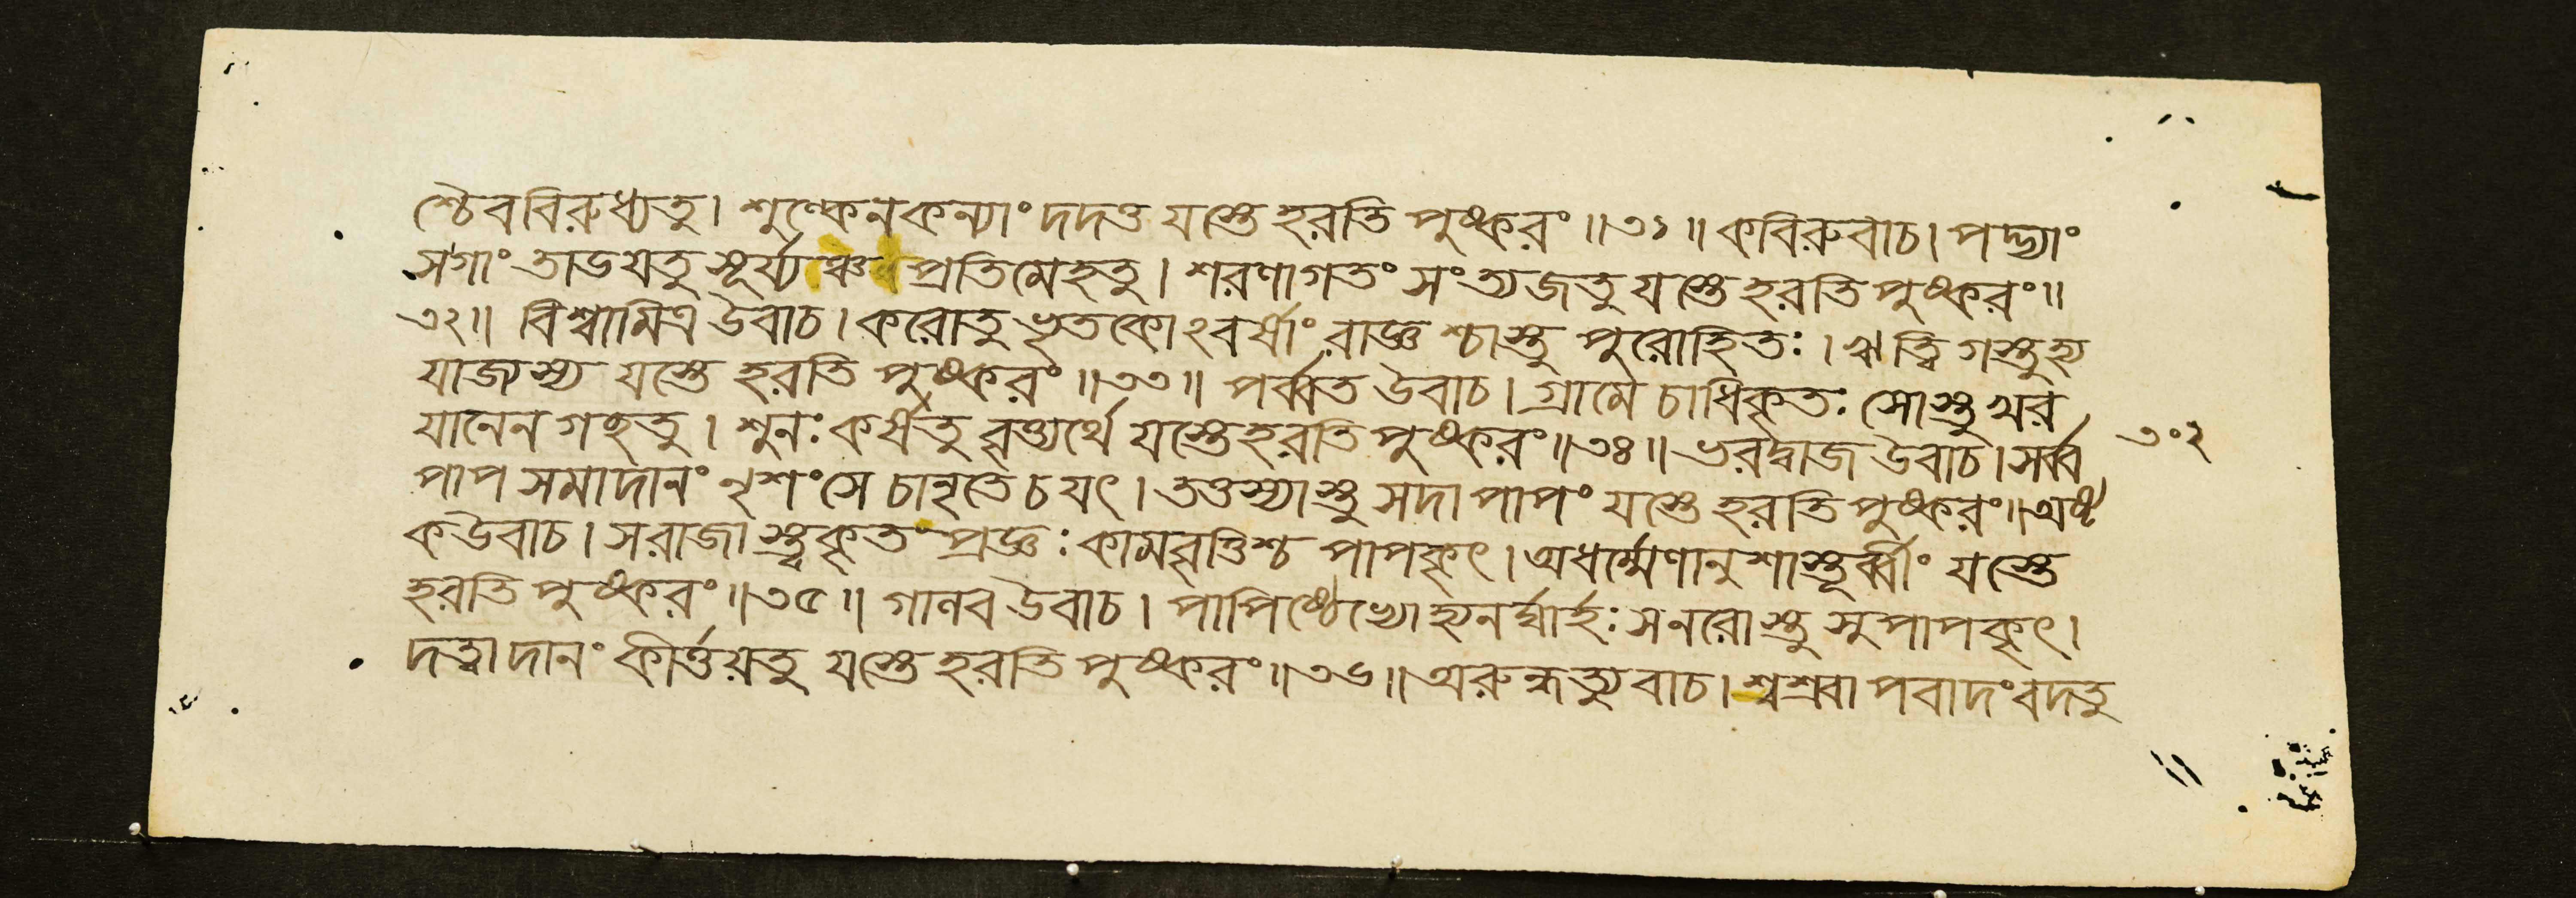 শ্চৈব বিরুধ্যতু। শুল্কেন কন্যাং দদতু যস্তে হরতি পুষ্করং ॥৩১॥ কবিরুবাচ। পদ্ভ্যাং
স গাং তাডযতু সূর্য্যঞ্চ প্রতিমেহতু। শরণাগতং সংত্যজতু যস্তে হরতি পুষ্করং॥
৩২॥ বিশ্বামিত্র উবাচ। করোতু ভৃতকোঽবর্ষাং রাজ্ঞশ্চাস্তু পুরোহিতঃ। ঋত্বিগস্তুহ্য
যাজ্যস্য যস্তে হরতি পুষ্করং ॥৩৩॥ পর্ব্বত উবাচ। গ্রামে চাধিকৃতঃ সোস্তু খর
যানেন গছতু। শুনঃ কর্ষতু বৃত্ত্যর্থে যস্তে হরতি পুষ্করং॥৩৪॥ ভরদ্বাজ উবাচ। সর্ব্ব
পাপ সমাদানং নৃশংসে চানৃতে চ যৎ। তত্তস্যাস্তু সদা পাপং যস্তে হরতি পুষ্করং॥ অষ্ট
ক উবাচ। স রাজাস্ত্বকৃতপ্রজ্ঞঃ কামবৃত্তিশ্চ পাপকৃৎ। অধর্ম্মেণানুশাস্তূর্ব্বীং যস্তে
হরতি পুষ্করং॥৩৫॥ গালব উবাচ। পাপিষ্ঠেভ্যো হ্যনর্ঘার্হঃ স নরোস্তু সুপাপকৃৎ।
দত্ত্বা দানং কীর্ত্তয়তু যস্তে হরতি পুষ্করং॥৩৬॥ অরুন্ধত্যুবাচ। শ্বশ্র্বাপবাদং বদতু
৩০২